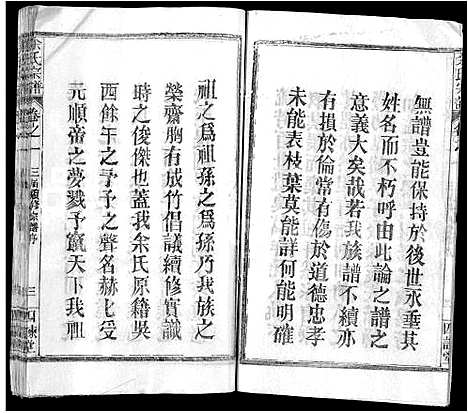 無譜豈能保持於後世永垂其
姓名而不朽呼由此論之譜之
意義大矣哉若我族譜不續亦
有損於倫常有傷於道德忠孝
未能表枝葉莫能詳何能明確
祖之為祖孫之為孫乃我族之
榮齋胸有放竹倡議續修實識
時之俊傑也蓋我余氏原籍吳
西餘干之予予之聲名赫匕受
元順帝之夢戮予竄天下我
余氏宗譜
卷之一
三屆續修宗譜序
三
四